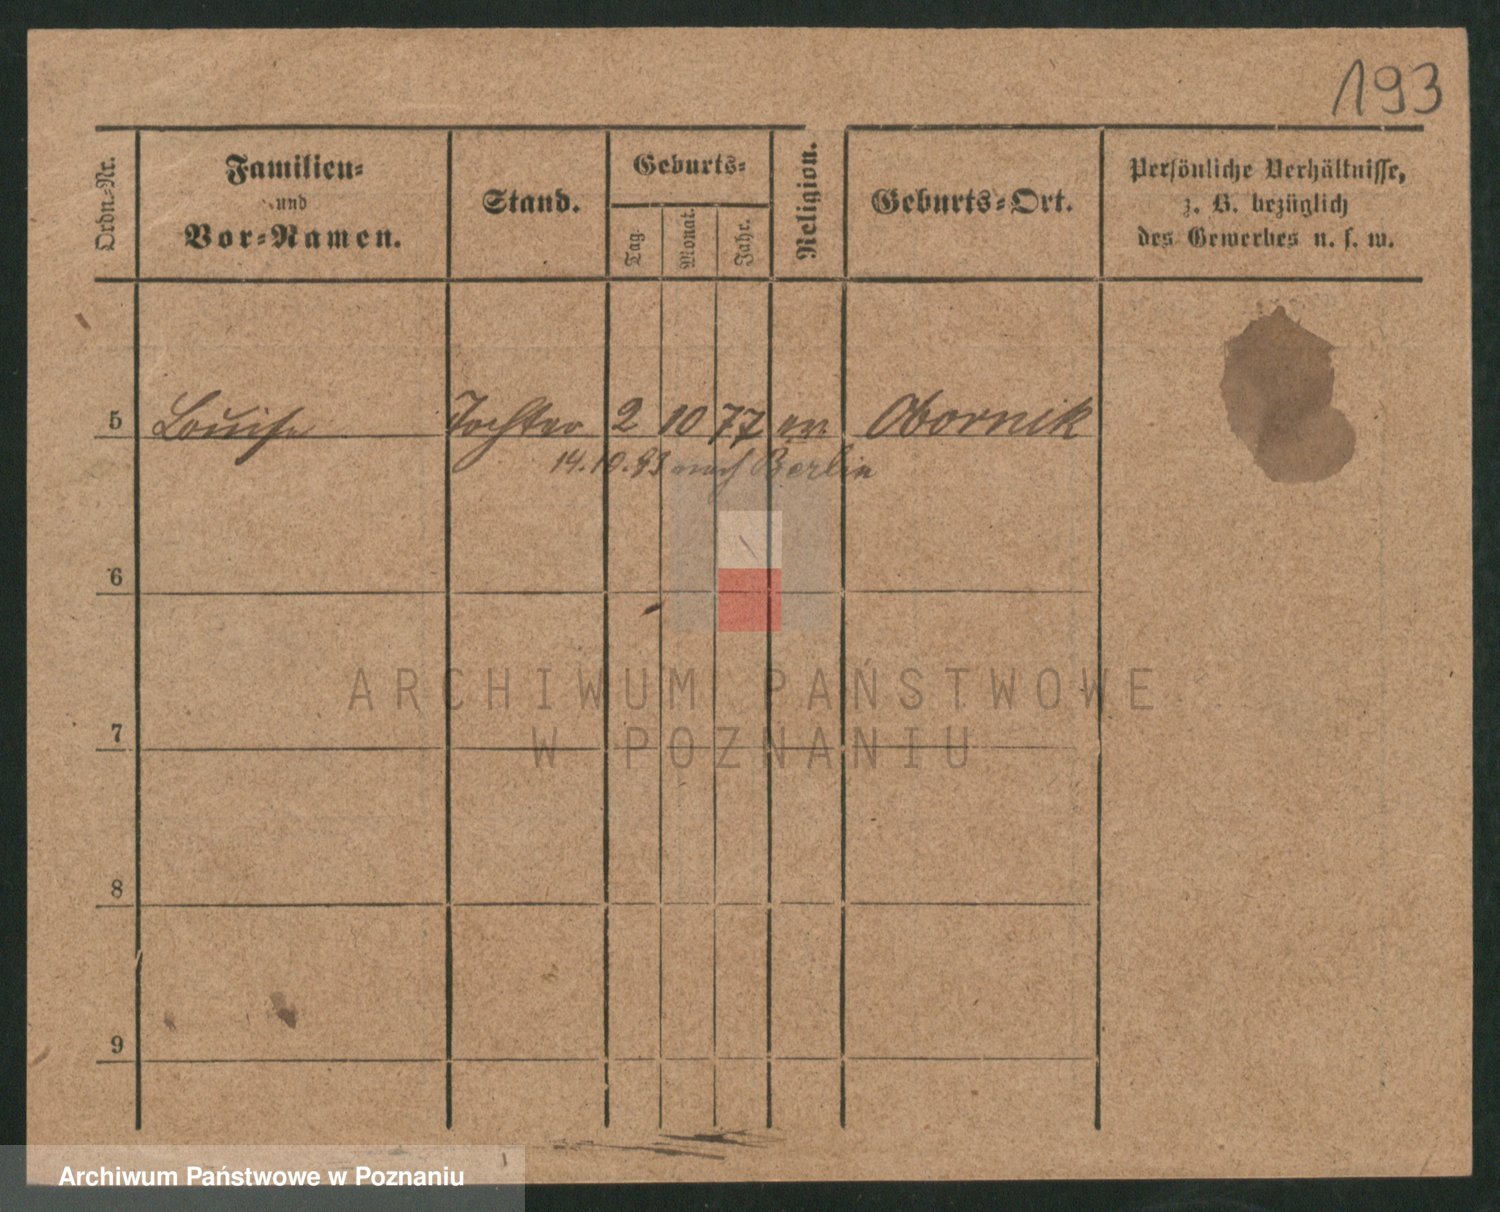 193
Ordn.-Nr.
Familien-
und
Vor-Namen.
Stand.
Geburts-
Tag.
Monat.
Jahr.
Religion.
Geburts-Ort.
Persönliche Verhältnisse,
z. B. bezüglich
des Gewerbes u. s. w.
5 Louise Tochter 2 10 77 ev. Obornik
14.10.93 nach Berlin
6
7
8
9
ARCHIWUM PAŃSTWOWE
W POZNANIU
Archiwum Państwowe w Poznaniu